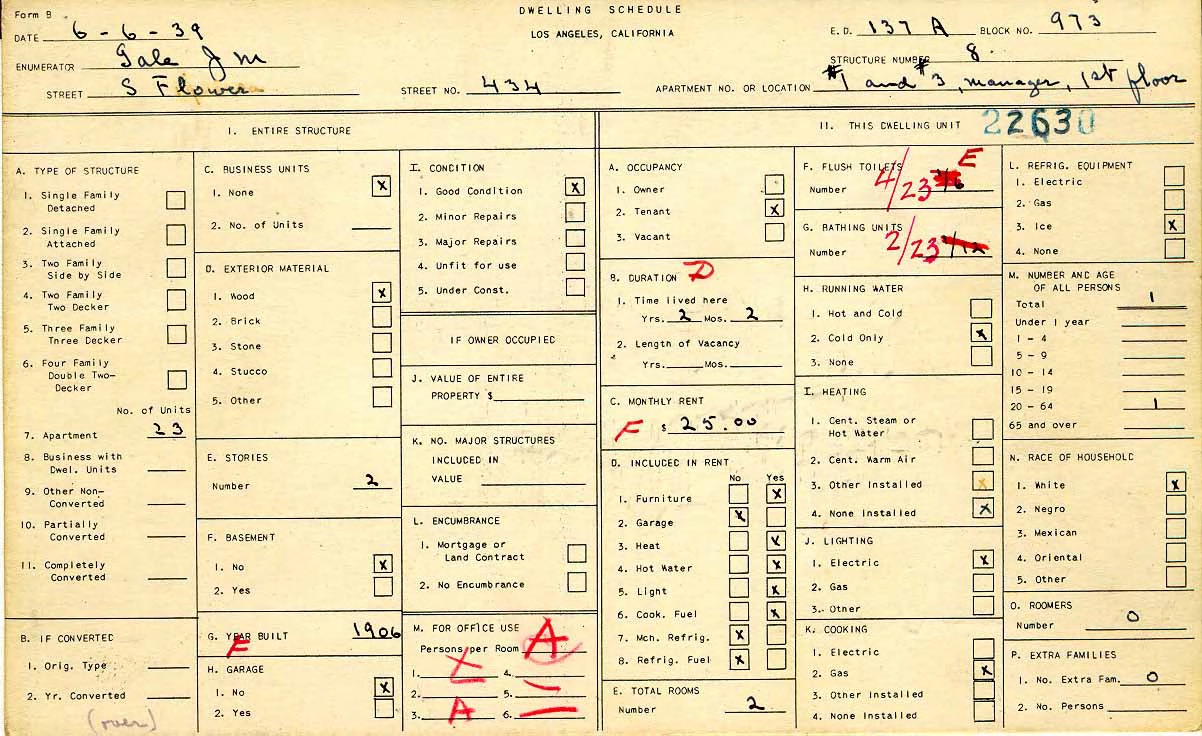 Form B
DWELLING SCHEDULE
LOS ANGELES, CALIFORNIA
DATE 6-6-39
E.D. 137 A BLOCK NO. 973
ENUMERATOR Gale J M
STRUCTURE NUMBER 8
STREET S Flower STREET NO. 434 APARTMENT NO. OR LOCATION #1 and #3, manager, 1st floor
I. ENTIRE STRUCTURE
II. THIS DWELLING UNIT 22630
A. TYPE OF STRUCTURE
1. Single Family Detached
2. Single Family Attached
3. Two Family Side by Side
4. Two Family Two Decker
5. Three Family Three Decker
6. Four Family Double Two-Decker
No. of Units
7. Apartment 23
8. Business with Dwel. Units
9. Other Non-Converted
10. Partially Converted
11. Completely Converted
B. IF CONVERTED
1. Orig. Type
2. Yr. Converted
(over)
C. BUSINESS UNITS
1. None X
2. No. of Units
D. EXTERIOR MATERIAL
1. Wood X
2. Brick
3. Stone
4. Stucco
5. Other
E. STORIES
Number 2
F. BASEMENT
1. No X
2. Yes
G. YEAR BUILT 1906
F
H. GARAGE
1. No X
2. Yes
I. CONDITION
1. Good Condition X
2. Minor Repairs
3. Major Repairs
4. Unfit for use
5. Under Const.
IF OWNER OCCUPIED
J. VALUE OF ENTIRE PROPERTY $
K. NO. MAJOR STRUCTURES INCLUDED IN VALUE
L. ENCUMBRANCE
1. Mortgage or Land Contract
2. No Encumbrance
M. FOR OFFICE USE
Persons per Room A
1. X 4.
2. 5. —
3. A 6. —
A. OCCUPANCY
1. Owner
2. Tenant X
3. Vacant
B. DURATION D
1. Time lived here
Yrs. 2 Mos. 2
2. Length of Vacancy
Yrs. Mos.
C. MONTHLY RENT
F $ 25.00
D. INCLUDED IN RENT
No Yes
1. Furniture X
2. Garage X
3. Heat X
4. Hot Water X
5. Light X
6. Cook. Fuel X
7. Mch. Refrig. X
8. Refrig. Fuel X
E. TOTAL ROOMS
Number 2
F. FLUSH TOILETS E
Number 4/23
G. BATHING UNITS
Number 2/23
H. RUNNING WATER
1. Hot and Cold
2. Cold Only X
3. None
I. HEATING
1. Cent. Steam or Hot Water
2. Cent. Warm Air
3. Other Installed X
4. None Installed X
J. LIGHTING
1. Electric X
2. Gas
3. Other
K. COOKING
1. Electric
2. Gas X
3. Other Installed
4. None Installed
L. REFRIG. EQUIPMENT
1. Electric
2. Gas
3. Ice X
4. None
M. NUMBER AND AGE OF ALL PERSONS
Total 1
Under 1 year
1 - 4
5 - 9
10 - 14
15 - 19
20 - 64 1
65 and over
N. RACE OF HOUSEHOLD
1. White X
2. Negro
3. Mexican
4. Oriental
5. Other
O. ROOMERS
Number 0
P. EXTRA FAMILIES
1. No. Extra Fam. 0
2. No. Persons